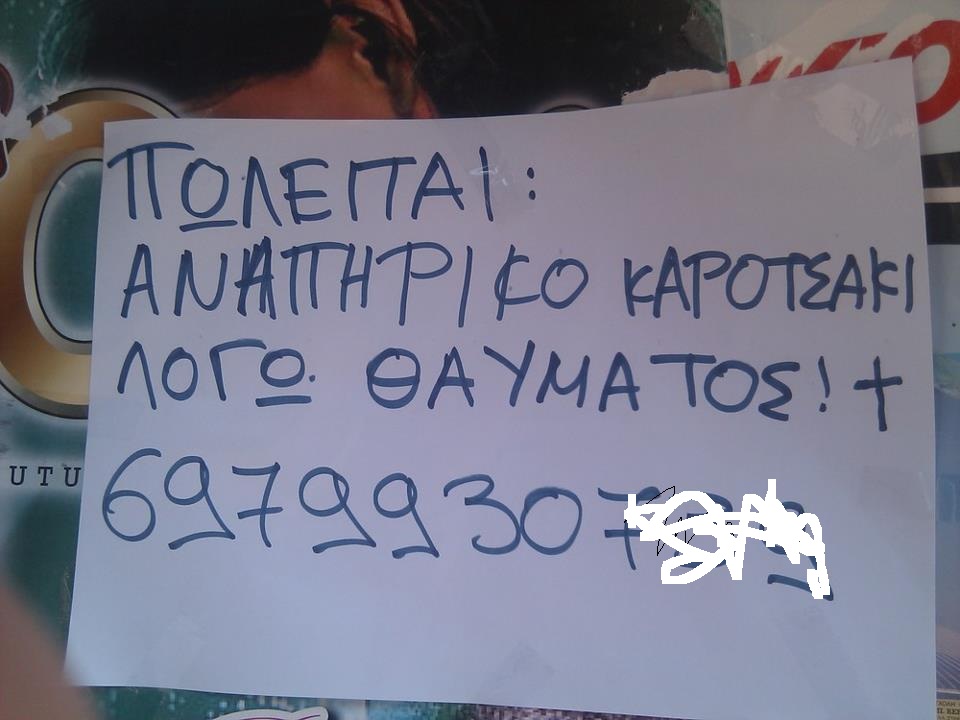 ΠΩΛΕΙΤΑΙ:
ΑΝΑΠΗΡΙΚΟ ΚΑΡΟΤΣΑΚΙ
ΛΟΓΩ ΘΑΥΜΑΤΟΣ! †
UTU